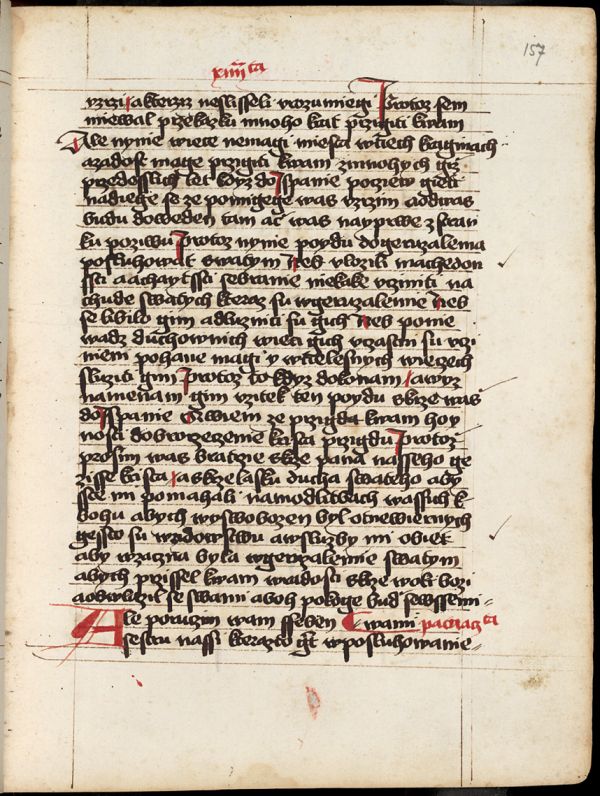 157
xiiii ta
vzrzi akterziz neslisseli vrozumiegi Protoz sem
miewal przekazku mnoho krat przigiti kwam
Ale nynie wiece nemagi miesta wtiech kraginach
azadost mage przigiti kwam zmnohych giz
przedesslich let kdyz do Ispanie pocziety gieti
nadiege se ze pomigege was vzrzim aodwas
budu doweden tam ac was nayprwe z stran
ku poziwu Protoz nynie poydu dogeruzalema
posluhowat swatym Neb vlozili machedon
ssti aachaytssti sebranie niekake vcziniti na
chude swatych kteraz su wgeruzalemie Neb
se libilo gim adluznici su gich Neb ponie
wadz duchownich wieci gich vczastni su vczi
nieni pohane magi y wtielesnych wieczech
sluziti gim Protoz to kdyz dokonam awyz
namenam gim vzitek ten poydu skrze was
do Ispanie Awiem ze przigda kwam hoy
nosti dobrorzeczenie krista przigdu Protoz
prosim was bratrzie skrze pana nasseho ge
zisse krista askrze lasku ducha swateho aby
sste mi pomahali namodlitbach wassich k
bohu abych wyswobozen byl otnewiernych
gessto su wzidowstwu awsluzby mi obiet
aby wzaczna byla wgeruzalemie swatym
abych przissel kwam wradosti skrze woli bozi
aobwlazil se swami aboh pokoge bud sewssemi
Ale poruczim wam sseben wami patnaczta
sestru nassi kterazto gt wposluhowanie